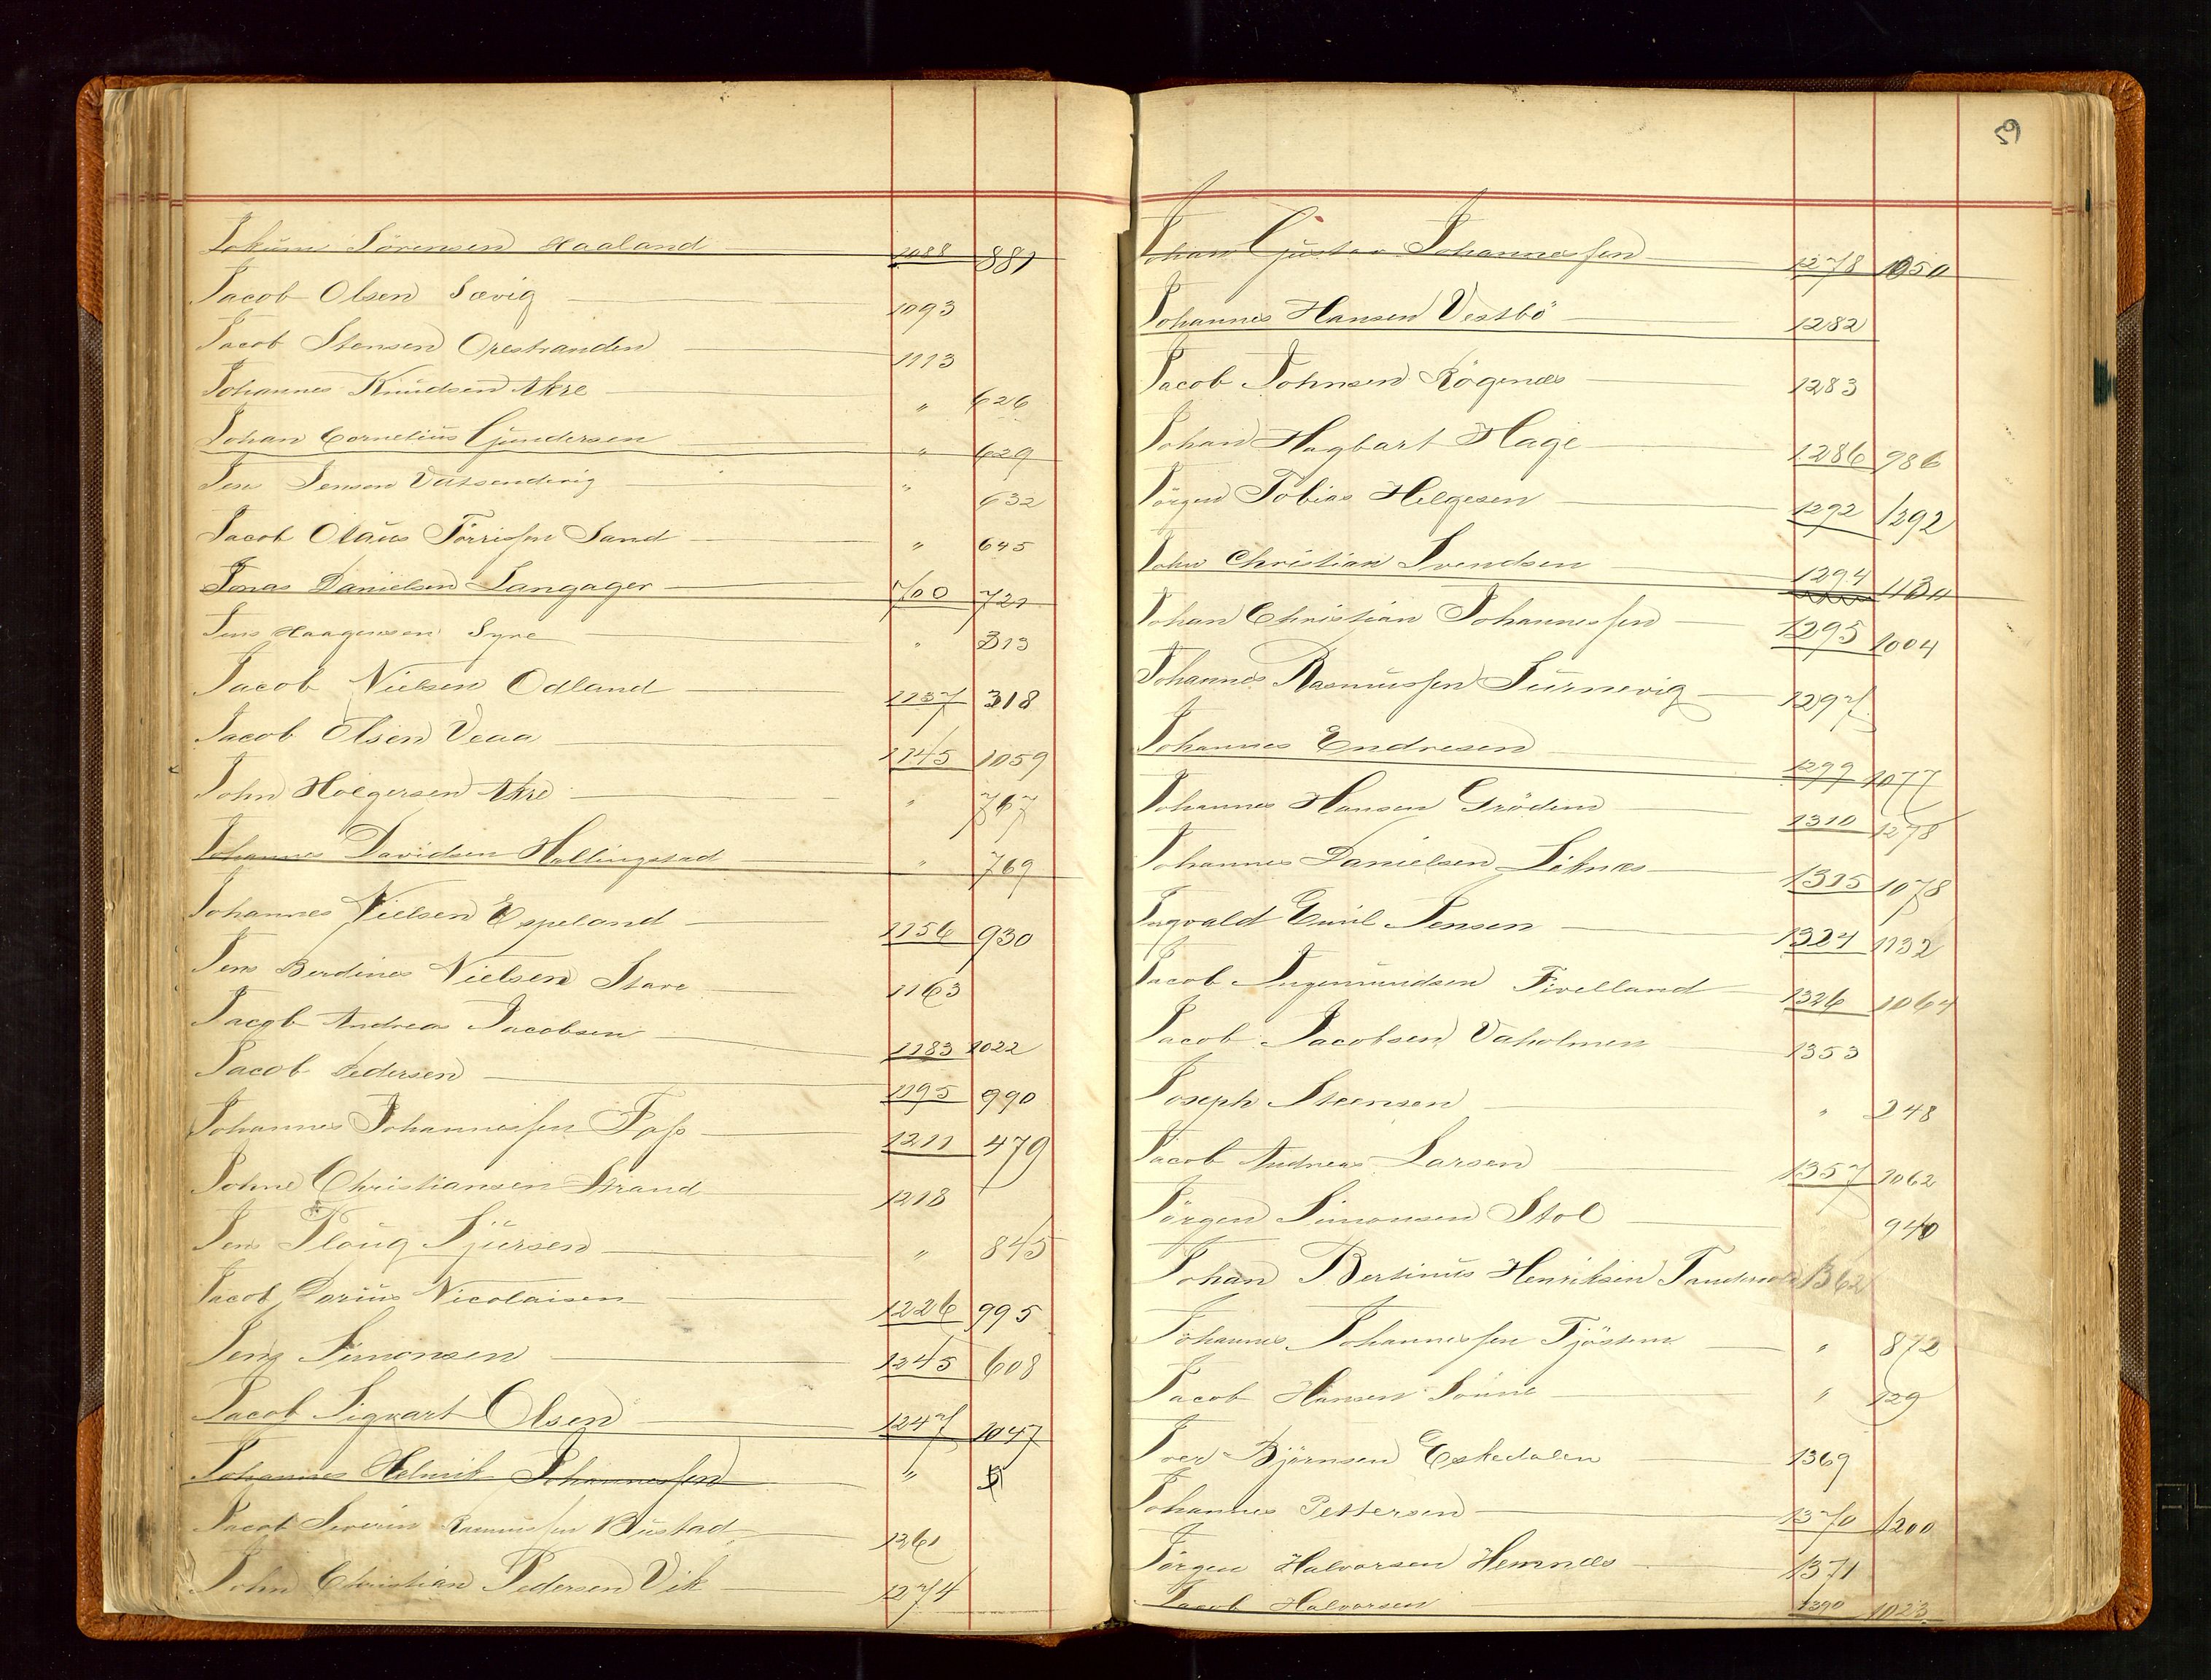 Jokum Sørensen Haaland 1088 881
Jacob Olsen Sævig 1093
Jacob Stensen Opestranden 1113
Johannes Knudsen Akre " 626
Johan Cornelius Gundersen " 629
Jens Jensen Vatsendvig " 632
Jacob Olaus Tørrissen Sand " 645
Jonas Danielsen Langager 700 721
Jens Haagensen Syre " 313
Jacob Nielsen Odland 1137 318
Jacob Olsen Veaa 1145 1059
John Holgersen Akre " 767
Johannes Davidsen Hallingstad " 769
Johannes Nielsen Espeland 1156 930
Jens Berdines Nielsen Stave 1163
Jacob Andreas Jacobsen 1183 1022
Jacob Pedersen 1195 990
Johannes Johannessen Fass 1211 479
Johne Christiansen Strand 1218
Jens Ploug Sjursen " 845
Jacob Darius Nicolaisen 1226 995
Jens Simonsen 1245 608
Jacob Sigvart Olsen 1247 1047
Johannes Helmik Johannessen "
Jacob Severin Rasmussen Bustad 1261
John Christian Pedersen Vik 1274
59
Johan Gustav Johannessen 1278 1050
Johannes Hansen Vestbö 1282
Jacob Johnsen Rögenæs 1283
Johan Hagbart Hage 1286 986
Jörgen Tobias Helgesen 1292 1292
John Christian Svendsen 1294
Johan Christian Johannessen 1295 1004
Johannes Rasmussen Surnevig 1297
Johannes Endresen 1299 1077
Johannes Hansen Grödem 1310 1278
Johannes Danielsen Liknæs 1315 1078
Ingvald Emil Jensen 1324 1132
Jacob Ingemundsen Fivelland 1326 1064
Jacob Jacobsen Vaholmen 1353
Joseph Steensen " 248
Jacob Andreas Larsen 1357 1062
Jörgen Simonsen Stol " 940
Johan Bertinus Henriksen 1362
Johannes Johannessen Tjöstem " 872
Jacob Hansen Sönne " 129
Iver Björnsen Eskedalen 1369
Johannes Pettersen 1370 1200
Jörgen Halvorsen Hemnæs 1371
Jacob Halvorsen 1390 1023